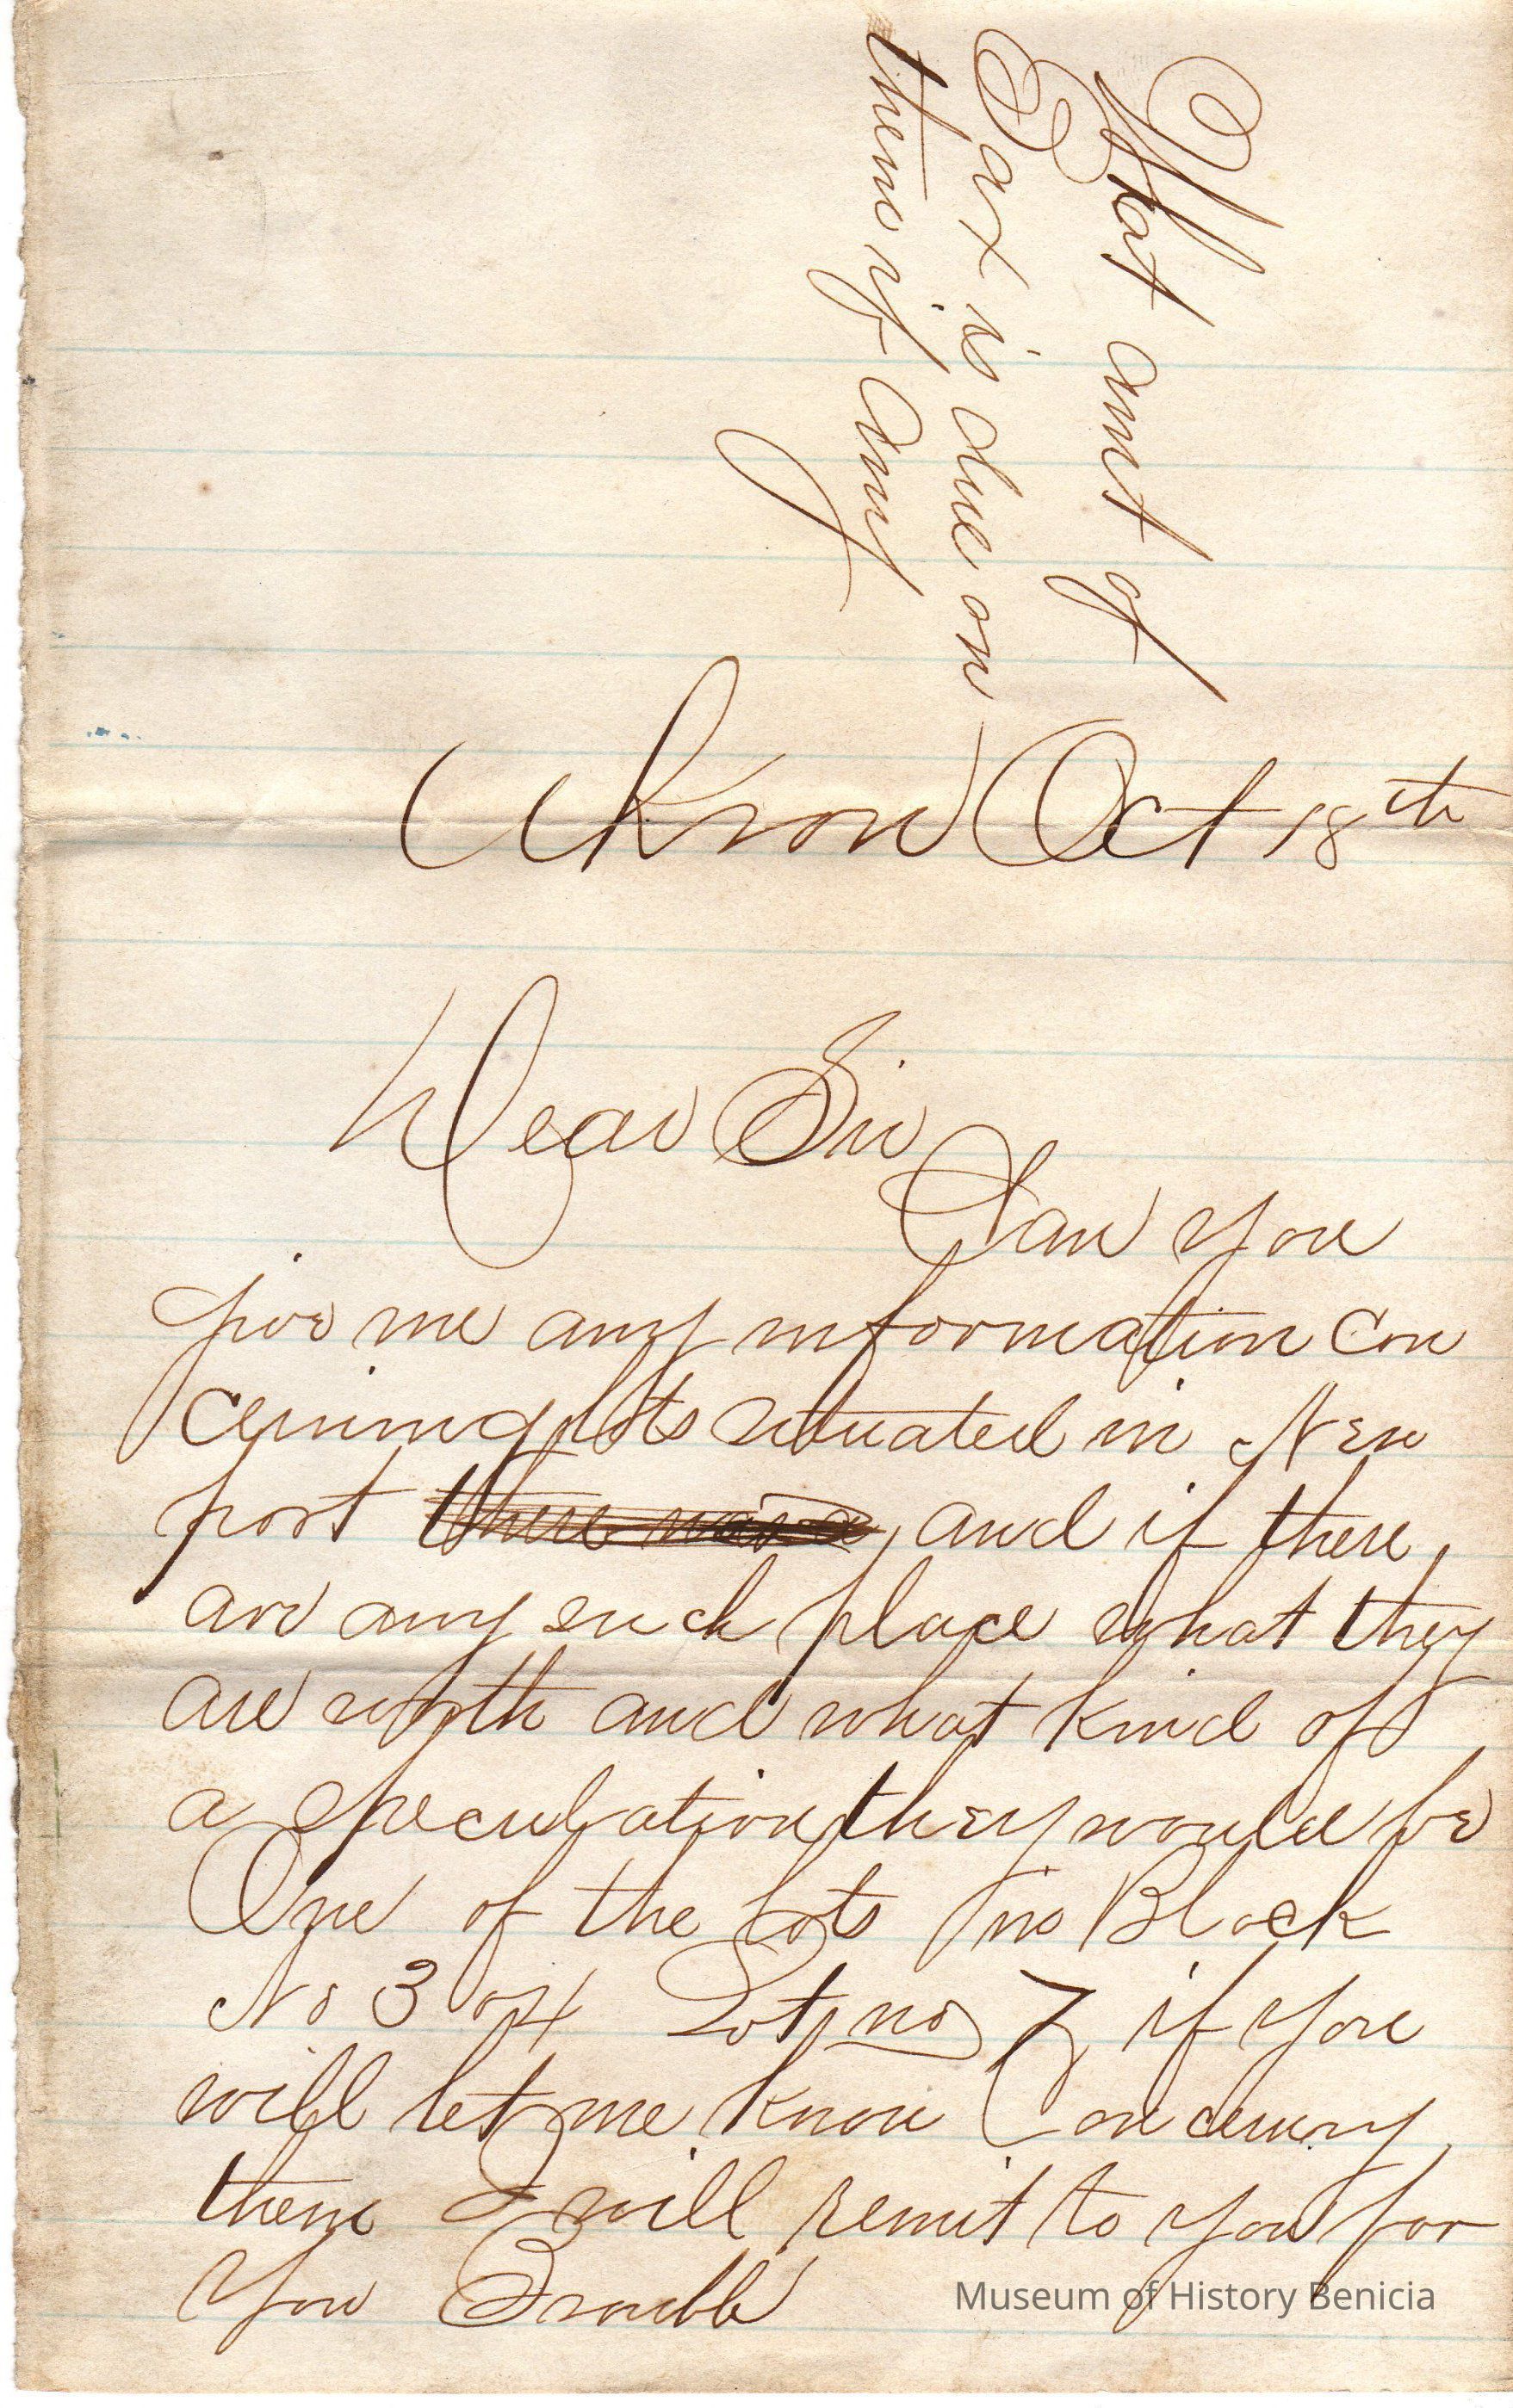 What amt of
Tax is due on
them if any
Akron Oct 18th
Dear Sir
Can you
give me any information con
cerning lots situated in New
port there was a, and if there
are any such place what they
are worth and what kind of
a speculation they would be
One of the lots ino Block
No 304 Lot no 7 if you
will let me know Concerning
them I will remit to you for
You Trouble
Museum of History Benicia